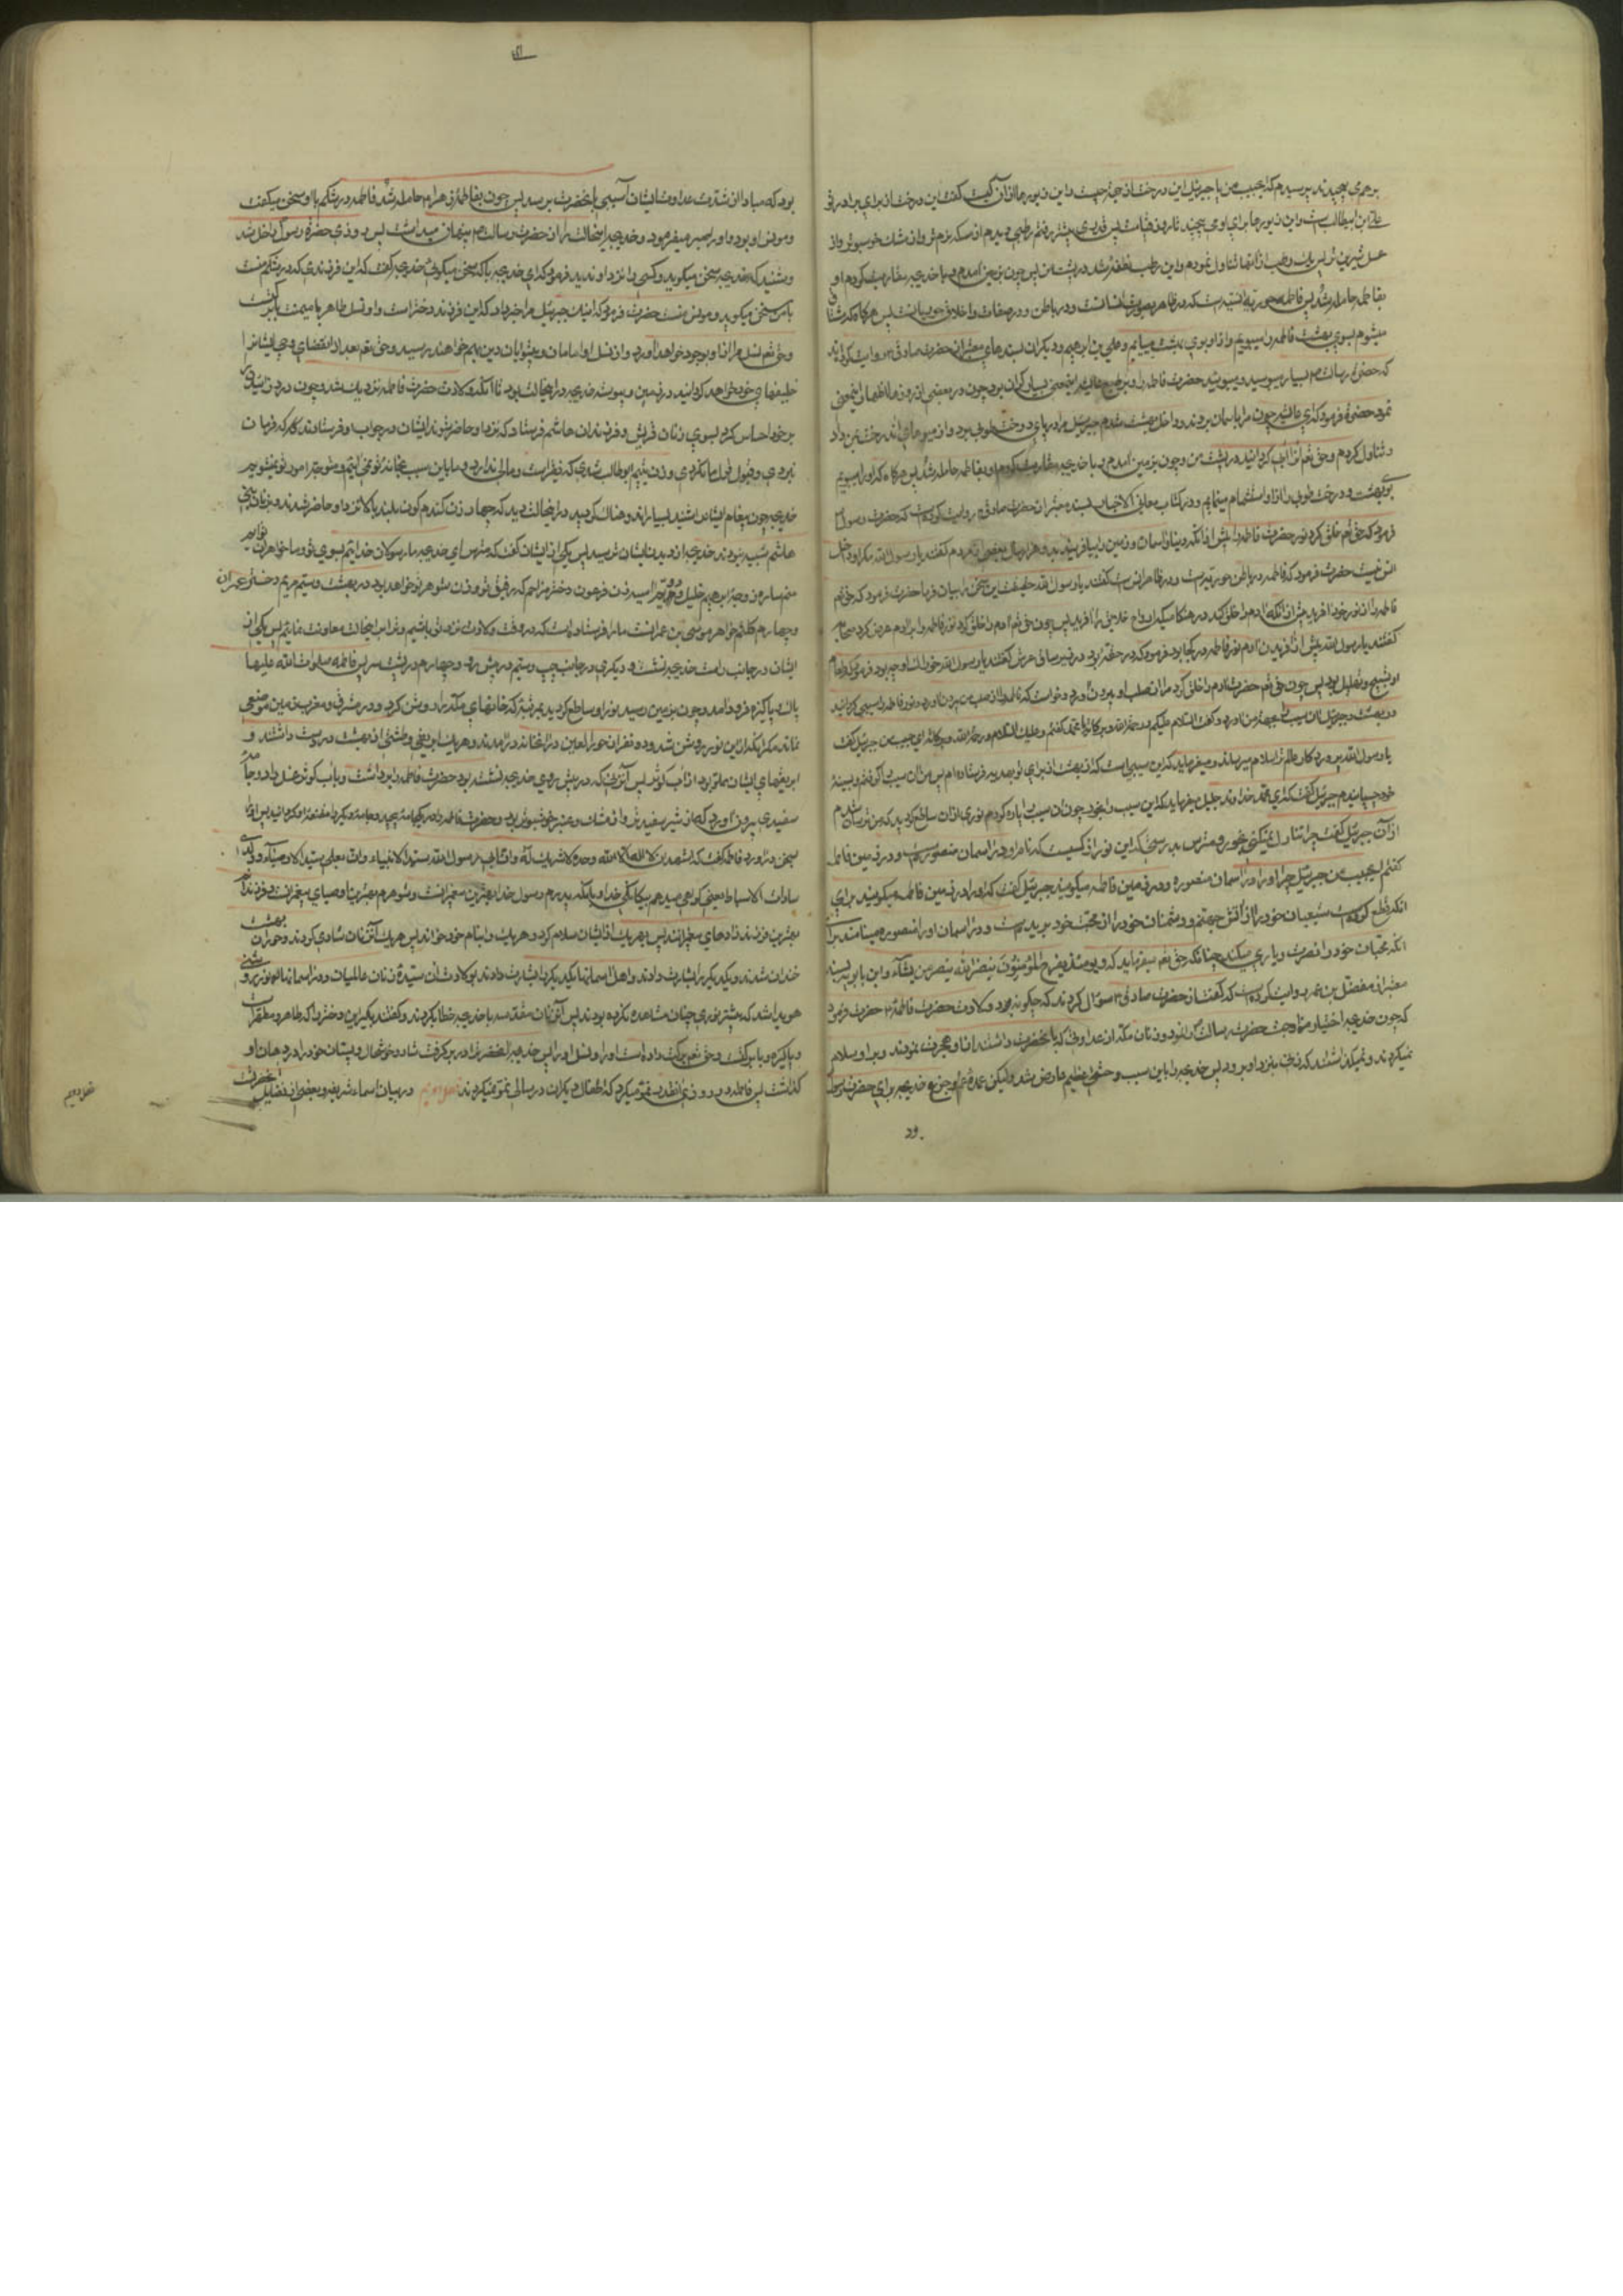 برهم می پیچیدند پرسیدم که ای حبیب من یا جبرئیل این درختان چیست و این زیورها از آن کیست گفت این درختان برای برادر تو
علی بن ابیطالب است و این زیورها برای او می پیچند تا روز قیامت پس قدری پیشتر رفتم رطبی دیدم از مسکه نرم تر و از مشک خوشبوتر و از
عسل شیرین تر پس یک رطب از آنها تناول نمودم و این رطب نطفه شد در پشت من پس چون بزمین آمدم و با خدیجه مقاربت کردم او
بفاطمه حامله شد پس فاطمه حوریه انسیه است که در ظاهر بصورت انسانست و در باطن و در صفات و اخلاق حوریانست پس هرگاه که مشتاق
میشوم ببوی بهشت فاطمه را میبویم و از او بوی بهشت مییابم و علی بن ابرهیم و دیگران بسندهای معتبر از حضرت صادق ع روایت کرده اند
که حضرت رسالت ص بسیار میبوسید و میبوئید حضرت فاطمه را و بر طبع عایشه اینمعنی بسیار گران بود چون در بعضی از روزها اظهار اینمعنی
نمود حضرت فرمود که ای عایشه چون مرا بآسمان بردند و داخل بهشت شدم جبرئیل مرا در پای درخت طوبی برد و از میوهای آندرخت بمن داد
و تناول کردم و حق تعم آنرا آبی گردانید در پشت من و چون بزمین آمدم و با خدیجه مقاربت کردم او بفاطمه حامله شد پس هرگاه که او را میبویم
بوی بهشت و درخت طوبی را از او استشمام مینمایم و در کتاب معانی الاخبار بسند معتبر از حضرت صادق ع روایت کرده است که حضرت رسول ص
فرمود که حق تعم خلق کرد نور حضرت فاطمه را پیش از آنکه بیافریند آسمان و زمین را بعضی از مردم گفتند یا رسول الله مگر او داخل
انس نیست حضرت فرمود که فاطمه در باطن حوریه است و در ظاهر انس است گفتند یا رسول الله حقیقت این سخن را بیان فرما حضرت فرمود که حق تعم
فاطمه را از نور خود آفرید پیش از آنکه آدم را خلق کند در هنگامیکه ارواح خلایق را آفرید پس چون حق تعم آدم را خلق کرد نور فاطمه را بر آدم عرض کرد صحابه
گفتند یا رسول الله پیش از آفریدن آدم نور فاطمه در کجا بود فرمود که در حقه بود در زیر ساق عرش گفتند یا رسول الله خوراک او چه بود فرمود که طعام
او تسبیح و تهلیل بود پس چون حق تعم حضرت آدم را خلق کرد مرا از صلب او بیرون آورد و خواست که فاطمه را از صلب من بیرون آورد نور فاطمه را سیبی گردانید
در بهشت و جبرئیل آن سیب را بجهة من آورد و گفت السلام علیکم و رحمة الله و برکاته یا محمد گفتم و علیک السلام و رحمة الله و برکاته ای حبیب من جبرئیل گفت
یا رسول الله پروردگار عالم ترا سلام میرساند و میفرماید که این سیبی است که از بهشت از برای تو هدیه فرستاده ام پس من آن سیب را گرفتم و بسینه
خود چسپانیدم جبرئیل گفت که ای محمد خداوند جلیل میفرماید که این سیب را بخور چون آن سیب را پاره کردم نوری از آن ساطع گردید که من ترسان شدم
از آن جبرئیل گفت چرا تناول نمیکنی بخور و مترس بدرستیکه این نور از کسیست که نام او در آسمان منصوره است و در زمین فاطمه
گفتم ای حبیب من جبرئیل چرا او را در آسمان منصوره و در زمین فاطمه میگویند جبرئیل گفت که او را در زمین فاطمه میگویند برای
آنکه قطع کرده است شیعیان خود را از آتش جهنم و دشمنان خود را از محبت خود بریده است و در آسمان او را منصوره مینامند برای
آنکه محبان خود را نصرت و یاری میکند چنانکه حق تعم میفرماید که و یومئذ یفرح المؤمنون بنصر الله ینصر من یشآء و ابن بابویه بسند
معتبر از مفضل بن عمر روایت کرده است که گفت از حضرت صادق ع سؤال کردند که چگونه بود ولادت حضرت فاطمه ع حضرت فرمود
که چون خدیجه اختیار مزاوجت حضرت رسالت نمود زنان مکه از عداوتی که با آنحضرت داشتند از او هجرت نمودند و بر او سلام
نمیکردند و نمیگذاشتند که زنی بنزد او برود پس خدیجه را باین سبب وحشتی عظیم عارض شد ولیکن عمده غم و جزع خدیجه برای حضرت رسول
ود
بود که مبادا از شدت عداوت ایشان آسیبی بآنحضرت برسد پس چون بفاطمه زهرا ع حامله شد فاطمه در شکم با او سخن میگفت
و مونس او بود و او را بصبر میفرمود و خدیجه اینحالت را از حضرت رسالت ص پنهان میداشت پس روزی حضرة رسول داخل شد
و شنید که خدیجه سخن میگوید و کسی را نزد او ندید فرمود که ای خدیجه با که سخن میگوئی خدیجه گفت که این فرزندی که در شکم منست
با من سخن میگوید و مونس منست حضرت فرمود که اینک جبرئیل مرا خبر داد که این فرزند دختر است و او نسل طاهر با میمنت با برکت
و حق تعم نسل مرا از او بوجود خواهد آورد و از نسل او امامان و پیشوایان دین بهم خواهند رسید و حق تعم بعد از انقضای وحی ایشانرا
خلیفهای خود خواهد گردانید در زمین و پیوسته خدیجه در اینحالت بود تا آنکه ولادت حضرت فاطمه نزدیک شد و چون درد زائیدن
در خود احساس کرد بسوی زنان قریش و فرزندان هاشم فرستاد که نزد او حاضر شوند ایشان در جواب او فرستادند که فرمان
نبردی و قبول قول ما نکردی و زن یتیم ابوطالب شدی که فقیر است و مالی ندارد و ما باین سبب بخانه تو نمی آئیم و متوجه امور تو نمیشویم
خدیجه چون پیغام ایشانرا شنید بسیار اندوهناک گردید در اینحالت دید که چهار زن گندم گون بلند بالا نزد او حاضر شدند و بزنان بنی
هاشم شبیه بودند خدیجه از دیدن ایشان ترسید پس یکی از ایشان گفت که مترس ای خدیجه ما رسولان خدائیم بسوی تو و ما خواهران توایم
منم ساره زوجه ابرهیم خلیل و دویم آسیه زن فرعون دختر مزاحم که رفیق تو و زن شوهر تو خواهد بود در بهشت و سیم مریم دختر عمران
و چهارم کلثم خواهر موسی بن عمرانست ما را فرستاده است که در وقت ولادت نزد تو باشیم و ترا بر اینحالت معاونت نمائیم پس یکی از
ایشان در جانب راست خدیجه نشست و دیگری در جانب چپ و سیم در پیش رو و چهارم در پشت سر پس فاطمه صلوات الله علیها
پاک و پاکیزه فرود آمد و چون بزمین رسید نور او ساطع گردید بمرتبه که خانهای مکه را روشن کرد و در مشرق و مغرب زمین موضعی
نماند مگر آنکه از این نور روشن شد و ده نفر از حور العین در آنخانه درآمدند و هر یک ابریقی و طشتی از بهشت در دست داشتند و
ابریقهای ایشان مملو بود از آب کوثر پس آنزنی که در پیش روی خدیجه نشسته بود حضرت فاطمه را برداشت و بآب کوثر غسل داد و جامه
سفیدی بیرون آورد که از شیر سفیدتر و از مشک و عنبر خوشبوتر بود و حضرت فاطمه را در یکجامه پیچید و جامه دیگر را مقنعه او گردانید پس او را
بسخن درآورد فاطمه گفت که اشهد ان لا اله الا الله وحده لا شریک له و ان ابی رسول الله سید الانبیاء و ان بعلی سید الاوصیآء و ولدی
سادات الاسباط یعنی گواهی میدهم بیگانگی خدا و بآنکه پدرم رسول خدا بهترین پیغمبرانست و شوهرم بهترین اوصیای پیغمبرانست و فرزندانم
بهترین فرزندزادهای پیغمبرانند پس بر هر یک از ایشان سلام کرد و هر یک را بنام خود خواند پس هر یک آنزنان شادی کردند و حوران بهشت
خندان شدند و یکدیگر را بشارت دادند و اهل آسمانها یکدیگر را بشارت دادند بولادت آن سیده زنان عالمیان و در آسمانها نوری روشنی
هویدا شد که پیشتر نوری چنان مشاهده نکرده بودند پس آنزنان مقدسه با خدیجه خطاب کردند و گفتند بگیر این دختر را که طاهر و مطهر است
و پاکیزه و با برکت و حق تعم برکت داده است او را و نسل او را پس خدیجه آنحضرترا در بر گرفت شاد و خوشحال و پستان خود را در دهان او
گذاشت پس فاطمه در روزی آنقدر نمو میکرد که اطفال دیگران در سالی نمو نمیکردند فصل دویم در بیان اسماء شریفه و بعضی از فضایل آنحضرت
فصل دویم